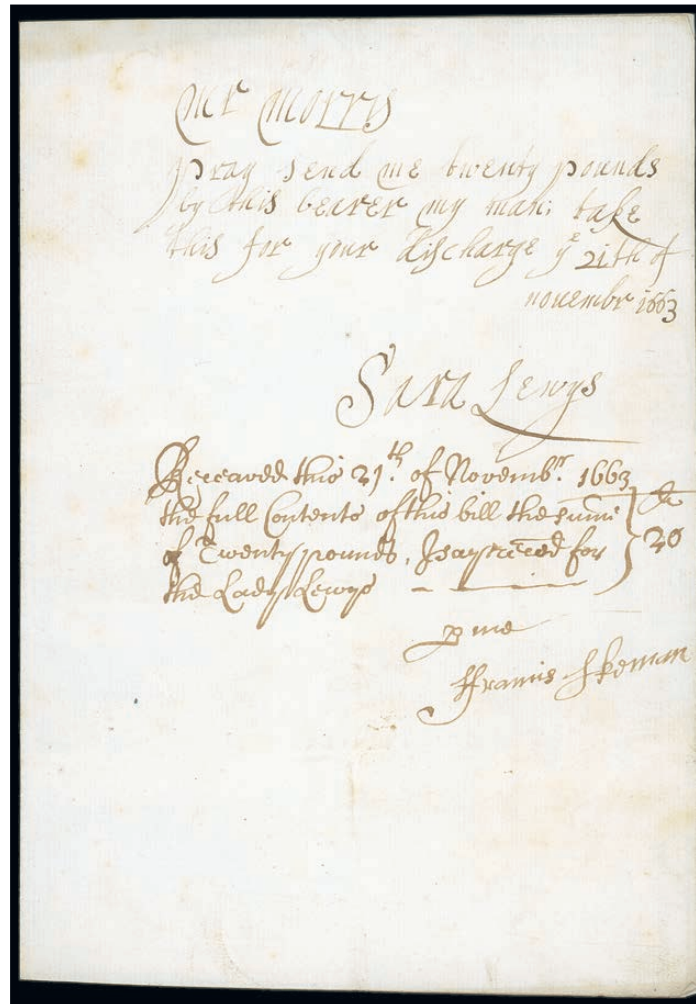 Mr Morris
pray send me twenty pounds
by this bearer my man; take
this for your discharge yͤ 21th of
nouembr 1663
Sara Lewys
Receaved this 21th. of Novembr. 1663
the full Contents of this bill the sume
of Twenty pounds, I say receed for
the Lady Lewys
20
p me
ffrancis